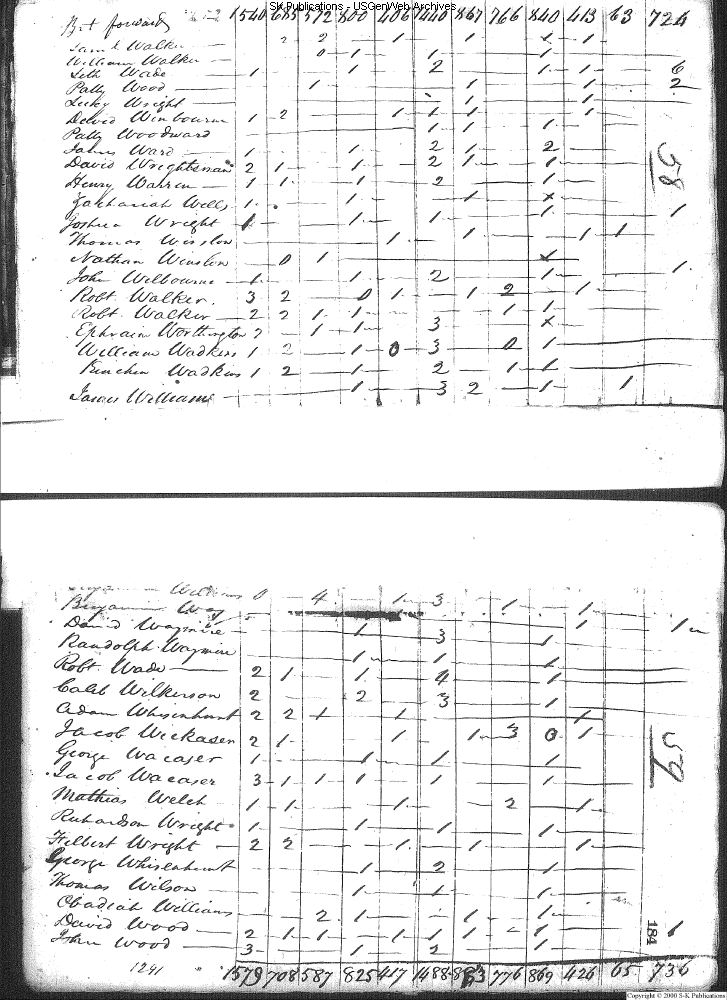 SK Publications - USGenWeb Archives
Bt forward 1540 685 572 800 406 1440 867 766 840 413 63 724
Saml Walker 2 2 1 1 1
William Walker 0 1 1 1
Seth Wade 1 1 2 1 1 6
Patty Wood 1 1 1 2
Lucky Wright 1 1 1
David Winbourne 1 2 1 1 1 1
Patty Woodward 1 1 1
James Ward 1 1 2 1 2
David Wrightsman 2 1 1 2 1 1
Henry Warren 1 1 1 2 1
Zachariah Wells 1 1 1 x
Joshua Wright 1 1 1 1 1
Thomas Winslow 1 1 1 1
Nathan Winslow 0 1 x
John Wilbourne 1 1 2 1 1
Robt. Walker 3 2 0 1 1 2 1
Robt. Walker 2 2 1 1 1 1
Ephraim Worthington 2 1 1 3 x
William Wadkins 1 2 1 0 3 0 1
Binchen Wadkins 1 2 1 2 1 1
James Williams 1 3 2 1 1
58
Williams 0 4 1 3
Benjamin Way 1 1
David Waymire 1 1 1
Randolph Waymire 3 1
Robt. Wade 2 1 1 4 1
Caleb Wilkerson 2 2 3 1
Adam Whisenhunt 2 2 1 1 1
Jacob Wickasen 2 1 1 1 3 0 1
George Wacaser 1 1 1 1
Jacob Wacaser 3 1 1 1 1 1
Mathias Welch 1 1 1 2 1
Richardson Wright 1 1 1 1
Filbert Wright 2 2 1 1 1
George Whisenhunt 1 2 1
Thomas Wilson 1 1 1
Obadiah Williams 2 1 1 1
David Wood 2 1 1 1 1 1 1 1 1
John Wood 3 1 2 1
59
184
1241 1579 708 587 825 417 1488 883 776 869 426 65 736
Copyright © 2000 S-K Publications